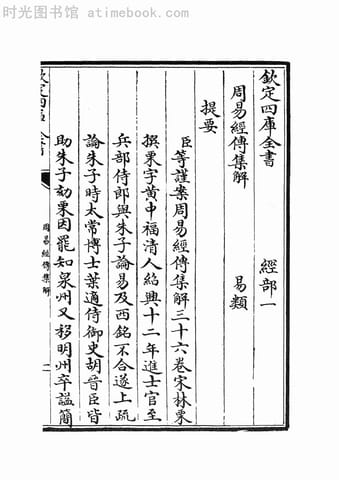 时光图书馆 - atimebook.com
欽定四庫全書　經部一
周易經傳集解　易類
提要
臣等謹案周易經傳集解三十六卷宋林栗
撰栗字黃中福清人紹興十二年進士官至
兵部侍郎與朱子論易及西銘不合遂上疏
論朱子時太常博士葉適侍御史胡晉臣皆
助朱子劾栗因罷知泉州又移明州卒諡簡
欽定四庫全書
周易經傳集解
一